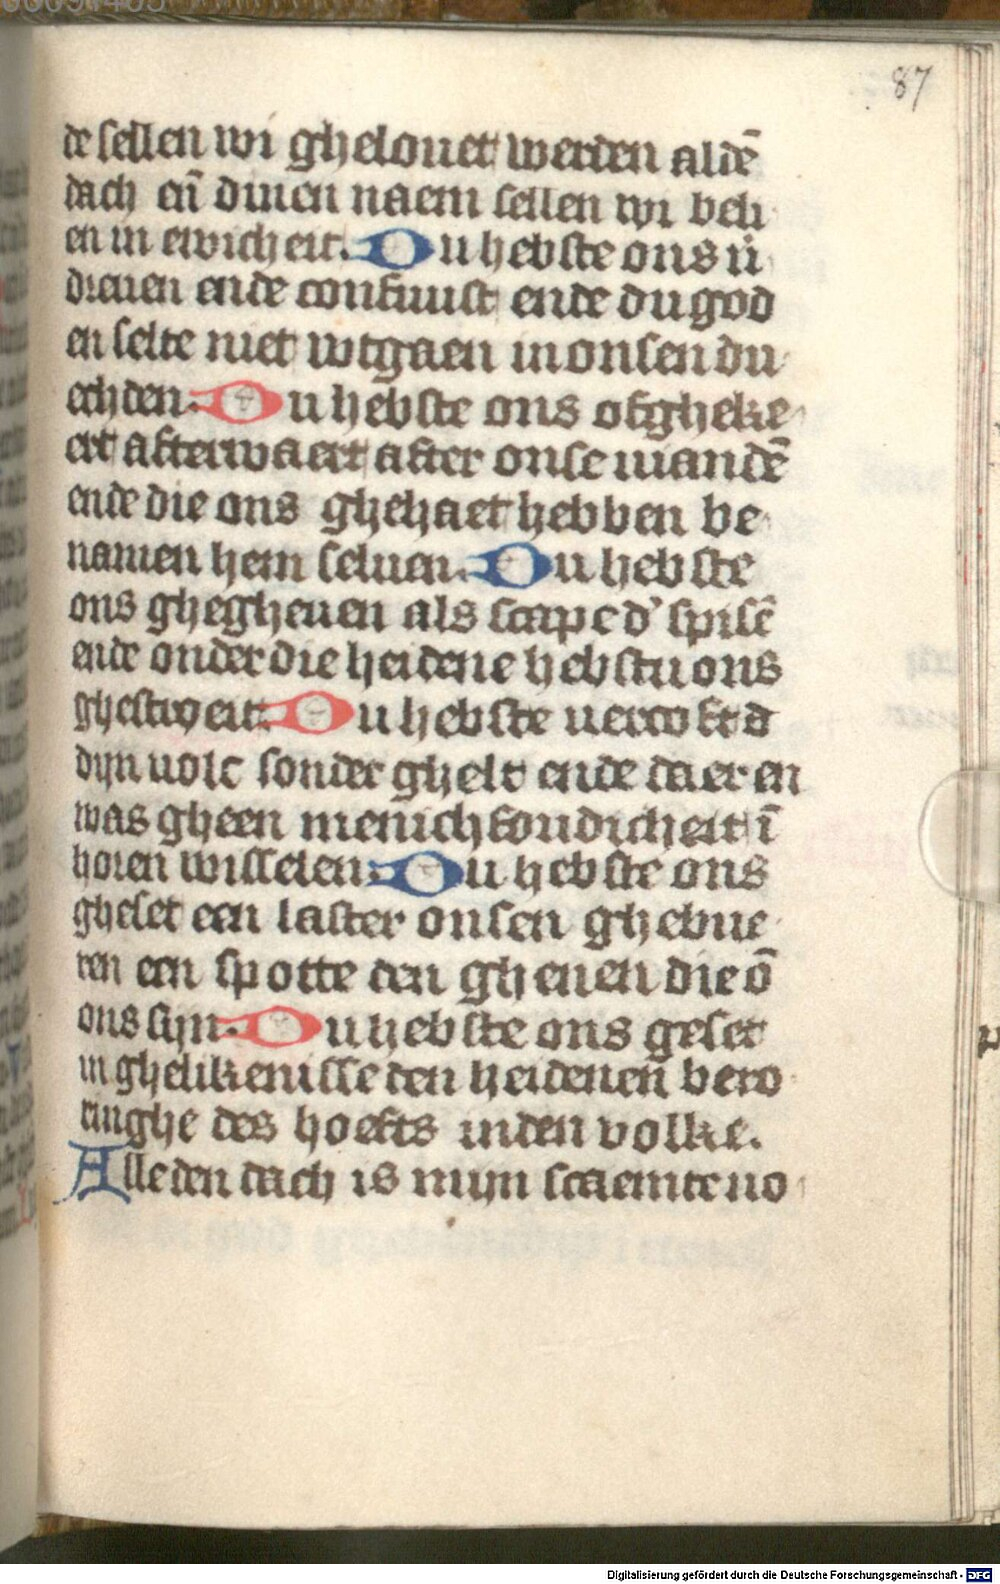 87
de sellen wi ghelouet werden aldē
dach eñ dinen naem sellen wi beli
en in ewicheit. Du hebste ons ů
dreuen ende confuust ende du god
en selte niet wtgaen in onsen du
echden. Du hebste ons ofgheke
ert afterwaert after onse viandē
ende die ons ghehaet hebben be
namen hem seluen. Du hebste
ons ghegheuen als scape d' spisē
ende onder die heidene hebstu ons
ghestroeit. Du hebste vercoft
dijn volc sonder ghelt ende daer en
was gheen menichfoudicheit ī
horen wisselen. Du hebste ons
gheset een laster onsen ghebue
ren een spotte den ghenen die ō
ons sijn. Du hebste ons geset
in ghelikenisse den heidenen bero
ringhe des hoefts inden volke.
Alle den dach is mijn scaemte vo
Digitalisierung gefördert durch die Deutsche Forschungsgemeinschaft - DFG